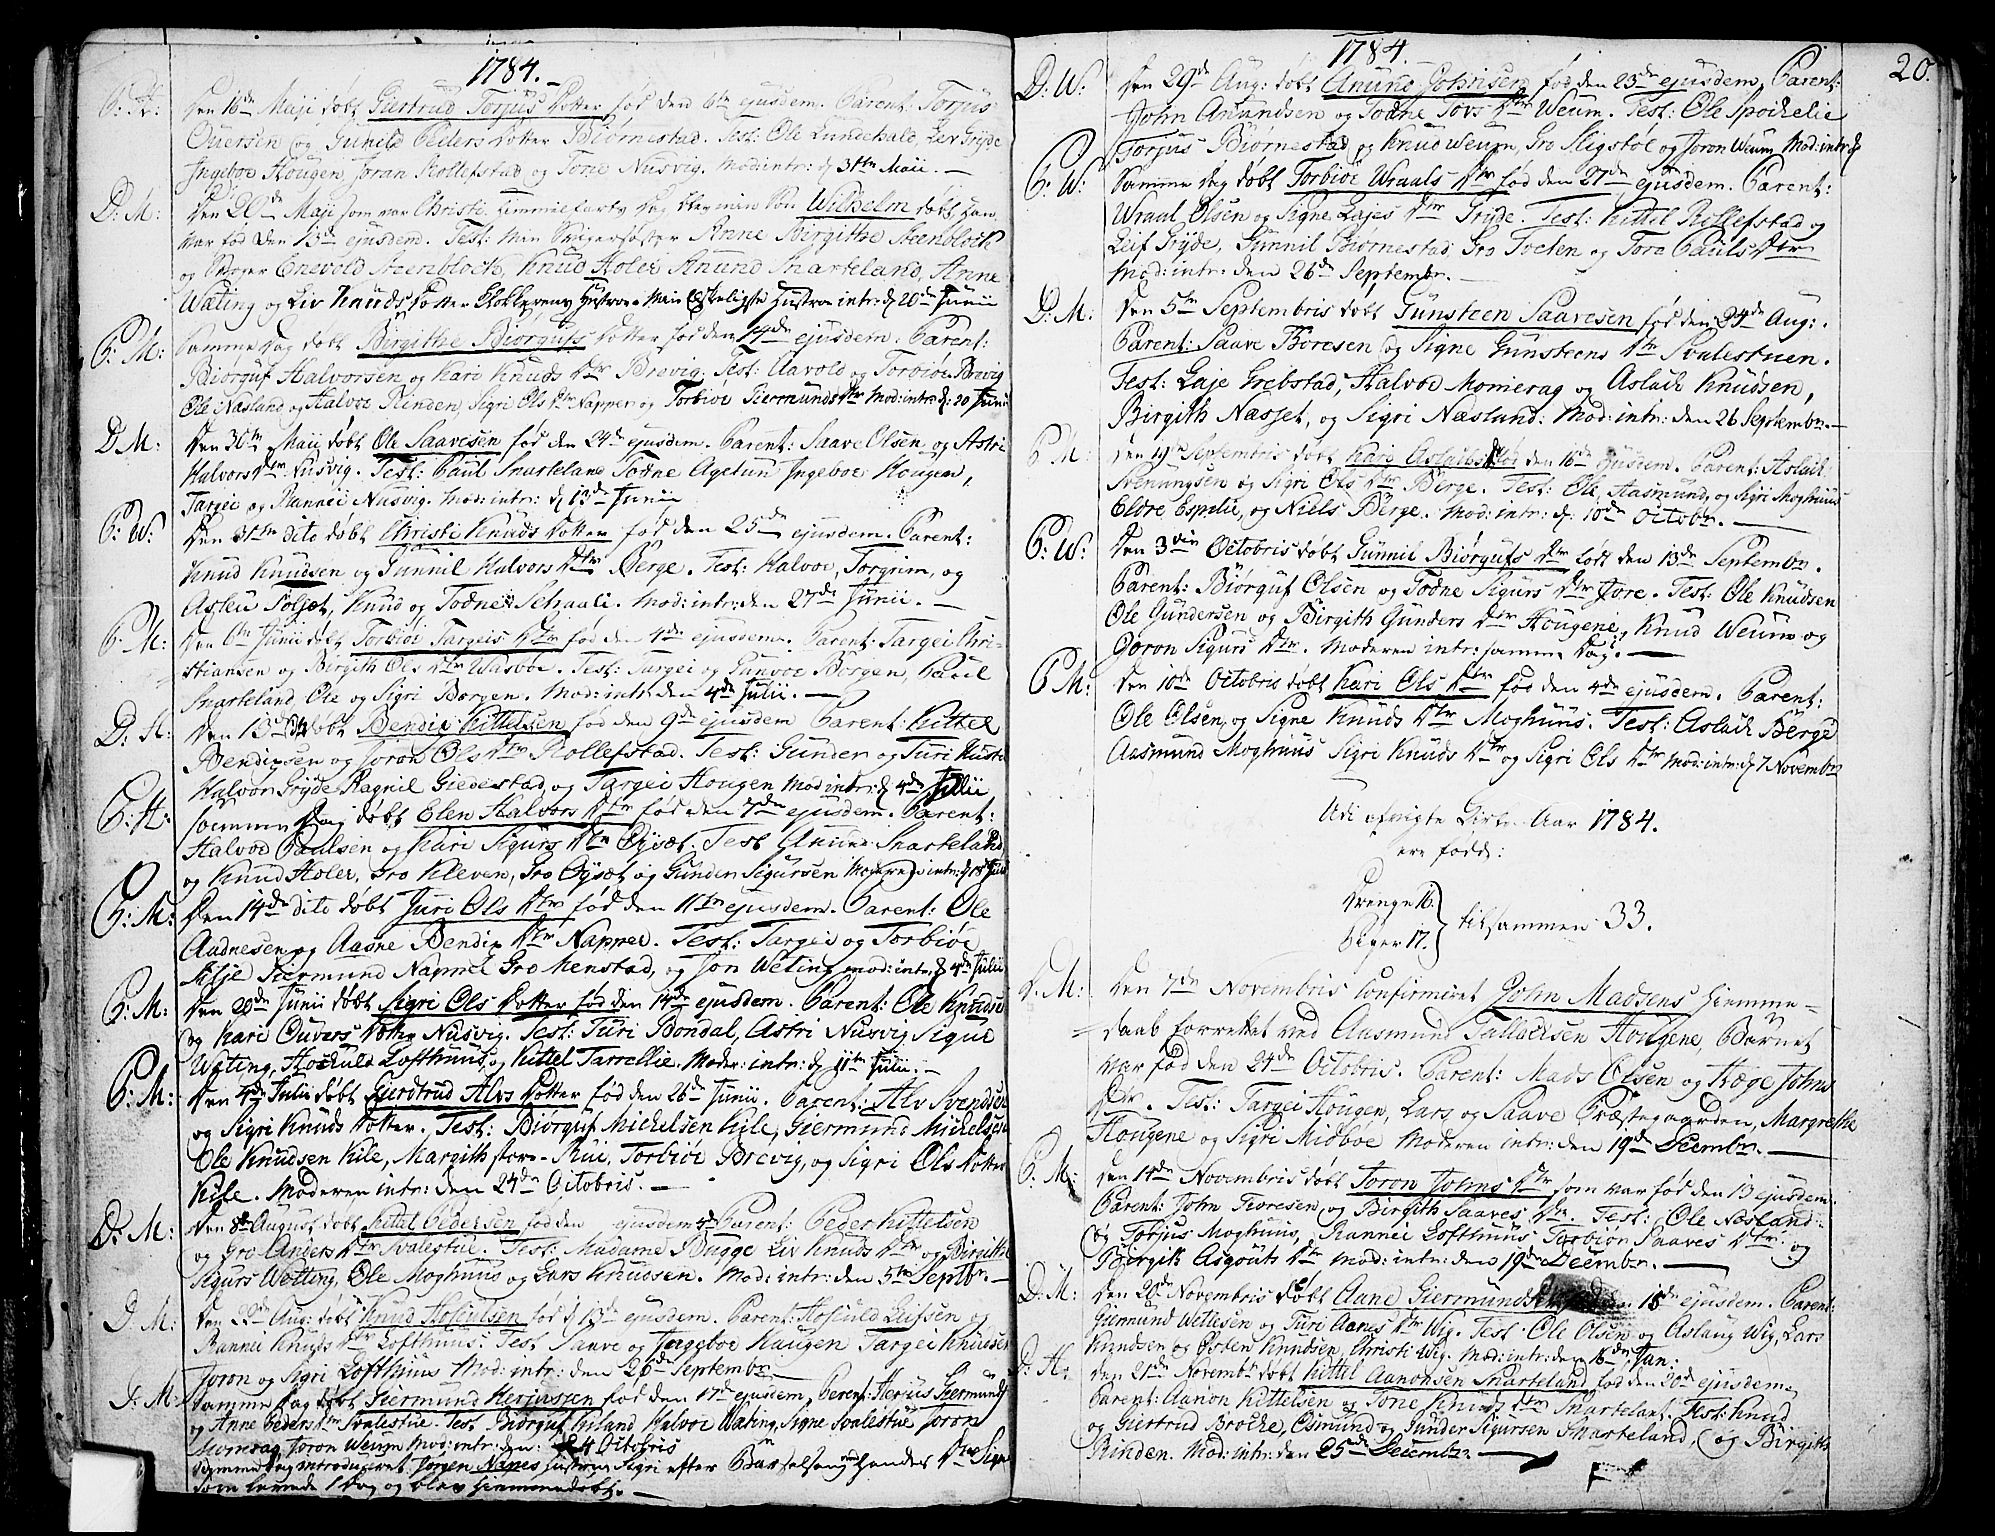 1784.
P: H: Den 16de Maji døbt Giertrud Torjus Dotter fød den 6te ejusdem. Parent: Torjus
Ouersen og Gunild Peders Dotter Biørnestad. Test: Ole Lundevald, Lev Gryde
Ingeboe Hougen, Joran Rollefstad og Tone Nusvig. Mod: intr: d 31te Maii.
D: M: Den 20de Maji som var Christi Himmelfarts Dag blev min Søn Wilhelm døbt han
var fød den 13de ejusdem. Test: Min Svigersøster Anne Birgitte Steenblock
og Svoger Enevold Steenblock, Knud Holer Anund Snarteland, Anne
Wating og Liv Knuds Dotter Klokkerens Hustroe. Min Elskeligste Hustroe intr: d 20de Junii
P: M: Samme Dag døbt Birgithe Biørgufs Dotter fød den 14de ejusdem. Parent:
Biørguf Halvorsen og Kari Knuds Dtr Brevig. Test: Aavold og Torbiør Brevig
Ole Nasland og Halvor Rinden, Sigri Ols Dtr Napper og Torbiør Giermunds Dtr Mod: intr: d: 20 Junii
D M: Den 30te Maii døbt Ole Saavesen fød den 24de ejusdem. Parent: Saave Olsen og Astri
Halvors Dtr Nusvig. Test: Paul Snarteland Todne Agetun Ingeboe Hougen,
Targei og Rannei Nusvig. Mod: intr: d 13de Junii
P: W: Den 31te dito døbt Christi Knuds Dotter fød den 25de ejusdem. Parent:
Knud Knudsen og Gunnil Halvors Dtr Berge. Test: Halvor, Torgrim, og
Asleu Soljet, Knud og Todne Schaali. Mod: intr: den 27de Junii.
P: M: Den 6te Junii døbt Torbiør Targeis Dtr fød den 4de ejusdem. Parent: Targei Chri-
stiansen og Birgith Ols Dtr Wasboe. Test: Targei og Gunvor Borgen, Paul
Snarteland, Ole og Sigri Borgen. Mod: intr: den 4de Julii.
D: H: Den 13de døbt Bendix Kittelsen fød den 9de ejusdem Parent: Kittel
Bendixsen og Joron Ols Dtr Rollefstad. Test: Gunder og Turi
Halvor Gryde Ragnil Giedestad, og Targei Hougen Mod: intr: d 4de Julii
P: H: Samme Dag døbt Elen Halvors Dtr fød den 7de ejusdem. Parent:
Halvor Paulsen og Kari Sigurs Dtr Øysæt. Test Anund Snarteland
og Knud Holer, Gro Kleven, Gro Øysæt og Gunder Sigursen Moderen intr: d 18 Julii
P: M: Den 14de dito døbt Juri Ols Dtr fød den 11te ejusdem. Parent: Ole
Aadnesen og Aasne Bendix Dtr Napper. Test: Targei og Torbiør
Giermund Napper Gro Menstad, og Jon Weting mod: intr: d 4de Julii
P: M: Den 20de Junii døbt Sigri Ols Dotter fød den 14de ejusdem. Parent: Ole Knudse
og Kari Ouvers Dotter Nusvig. Test: Turi Bondal, Astri Nusvig Signe
Wating, Hockuld Lofthuus, og Kittel Tarrellie. Moder: intr: d 11te Julii.
P: M: Den 4de Julii døbt Gierdtrud Alvs Dotter fød den 26de Junii. Parent: Alv Svendsen
og Sigri Knuds Dotter. Test: Biørguf Michelsen Kile, Giermund Michelsen
Ole Knudsen Kile, Margith store-Rui, Torbiør Brevig, og Sigri Ols Dotter
Kile. Moderen intr: den 24de Octobris.
D: M: Den 8de August døbt Kittel Pedersen fød den ejusdem 4de Parent: Peder Kittelsen
og Gro Anders Dtr Svalestue. Test: Madame Bugge Liv Knuds Dtr og Birgithe
Sigurs Wetting, Ole Moghuus og Lars Knudsen. Mod: intr: den 5te Septbr.
D: M: Den 22de Aug: døbt Knud Hofculsen fød d 13de ejusdem Parent: Hofculd Leifsen og
Rannei Knuds Dtr Lofthuus. Test Saave og Ingeboe Haugen Targei Knudsen
Joron og Sigri Lofthuus Mod: intr: den 26de Septembr.
D: M: Samme Dag døbt Giermund Herjussen fød den 17de ejusdem, Parent: Herjus Giermunds
og Anne Peders Dtr Svalestue. Test Biørguf Halvor Wating, Signe Svalestue Joron
Momrag Joron Weum Mod: intr: den: 24 Octobris
Samme Dag introduceret Jørgen Næses Hustroe Sigri efter Barselseng hendes Dtr Signe
som levede 1 Dag og blev hiemmedøbt.
1784.
20.
D: W: Den 29de Aug: døbt Anund Johnsen fød den 23de ejusdem, Parent:
John Anundsen og Todne Tovs Dtr Weum. Test: Ole Spockelie
Torjus Biørnestad og Knud Weum, Gro Sligstøl og Joron Weum Mod: intr: d
P: W: Samme Dag døbt Torbiør Wraals Dtr fød den 27de ejusdem. Parent:
Wraal Olsen og Signe Lajes Dtr Gryde. Test: Kittel Rollefstad og
Leif Gryde, Gunnil Biørnestad, Gro Tveten og Tore Pauls Dtr
Mod: intr: den 26de Septembr.
D: M: Den 5te Septembris døbt Gunsteen Saavesen fød den 24de Aug:.
Parent: Saave Boresen og Signe Gunsteens Dtr Svalestuen.
Test: Laje Grebstad, Halvor Momerag og Aslach Knudsen,
Birgith Næsset, og Sigri Næsland. Mod: intr: den 26 Septembr.
P M: Den 19de Septembris døbt Kari Aslachs Dtr fød den 16de ejusdem. Parent: Aslach
Svenungsen og Sigri Ols Dtr Berge. Test: Ole, Aasmund, og Sigri Moghuus
Eldre Espelie, og Niels Berge. Mod: intr: d: 10de Octobr.
P: W: Den 3die Octobris døbt Gunnil Biørgufs Dtr født den 13de Septembr.
Parent: Biørguf Olsen og Todne Sigurs Dtr Jore. Test: Ole Knudsen
Ole Gundersen og Birgith Gunders Dtr Hougene, Knud Weum og
Joron Sigurs Dtr. Moderen intr: samme Dag.
P M: Den 10de Octobris døbt Kari Ols Dtr fød den 4de ejusdem. Parent:
Ole Olsen, og Signe Knuds Dtr Moghuus. Test: Aslach Berge
Aasmund Moghuus Sigri Knuds Dtr og Sigri Ols Dtr Mod: intr: d 7 Novembr
Udi afvigte Kirke Aar 1784.
ere fødde:
Drenge 16.
Piger 17. } tilsammen 33.
D. M: Den 7de Novembris Confirmeret John Madsens Hiemme-
daab forrettet ved Aasmund Tallachsen Hougene, Barnet
var fød den 24de Octobris. Parent: Mads Olsen og Hæge Johns
Dtr. Test: Targei Hougen, Lars og Saave Præstegaarden, Margrethe
Hougene og Sigri Midbøe Moderen intr: den 19de Decembr.
P: M: Den 14de Novembris døbt Joron Johns Dtr som var fød den 13 ejusdem.
Parent: John Toresen og Birgith Saaves Dtr. Test: Ole Næsland
og Torjus Moghuus, Rannei Lofthuus Torbiør Saaves Dtr og
Birgith Asgouts Dtr Mod: intr: den 19de Decembr.
D: M: Den 20de Novembris døbt Aane Giermundsen fød den 18de ejusdem. Parent:
Giermund Wetlesen og Turi Aanes Dtr Wig. Test: Ole Olsen og Aslaug Wig, Lars
Knudsen og Østen Knudsen, Christi Wig. Mod: intr: den 16de Jan:
D: H: Den 21de Novembr døbt Kittel Aanonsen Snarteland fød den 20de ejusdem.
Parent: Aanon Kittelsen og Tone Knuds Dtr Snarteland. Test: Knud
og Giertrud Brocke, Osmund og Gunder Sigursen Snarteland, og Birgith
Rinden. Mod: intr: den 25de Decembr.